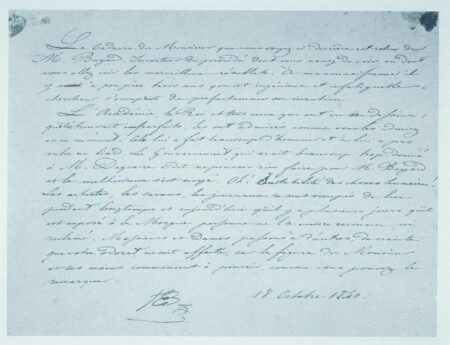 Le cadavre du Monsieur que vous voyez ci derrière est celui de
M. Bayard, Inventeur du procédé dont vous venez de voir, ou dont
vous allez voir les merveilleux résultats. A ma connaissance il
y a à peu près trois ans que cet ingénieux et infatigable
chercheur s'occupait de perfectionner son invention.
L'Académie, le Roi et tous ceux qui ont vu ses dessins,
que lui trouvait imparfaits, les ont admirés comme vous les admirez
en ce moment. Cela lui a fait beaucoup d'honneur et ne lui a pas
valu un liard. Le Gouvernement, qui avait beaucoup trop donné
à M. Daguerre a dit ne pouvoir rien faire pour M. Bayard
et le malheureux s'est noyé. Oh! instabilité des choses humaines!
Les artistes, les savans, les journaux se sont occupés de lui
pendant longtemps et aujourd'hui qu'il y a plusieurs jours qu'il
est exposé à la Morgue personne ne l'a encore reconnu, ni
réclamé. Messieurs et Dames, passons à d'autres, de crainte
que votre odorat ne soit affecté, car la figure du Monsieur
et ses mains commencent à pourrir comme vous pouvez le
remarquer.
HB
18 Octobre 1840.